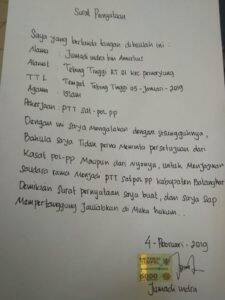 Surat Pernyataan
Saya yang bertanda tangan dibawah ini :
Nama : Jumadi indra bin Amirhus
Alamat : Tebing Tinggi RT 01 kec pemayung
TTL : Tempat Tebing Tinggi 05-Januari-2019
Agama : Islam
Pekerjaan : PTT sat-pol pp
Dengan ini saya mengatakan dengan sesungguhnya,
Bahwa saya Tidak perna Meminta persetujuan dari
Kasat pol-pp Maupun dari nyonya, untuk Menjaminkan
saudara rama Menjadi PTT satpol pp kabupaten Batanghari
Demikian surat pernyataan saya buat, dan saya siap
Mempertanggung Jawabkan di Muka hukum.
4-Februari-2019
METERAI
TEMPEL
6000
Jumadi indra